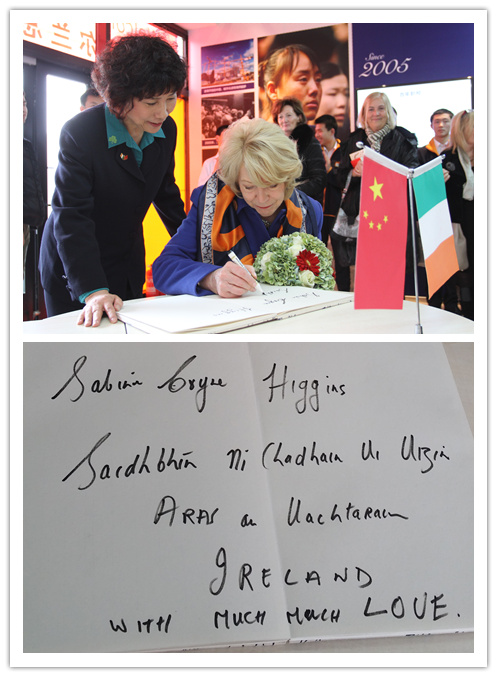 Since
2005
Sabina Coyne Higgins
Saidhbhín Ni Chadhain Ui Uigin
ARAS an Uachtarain
IRELAND
WITH MUCH MUCH LOVE.